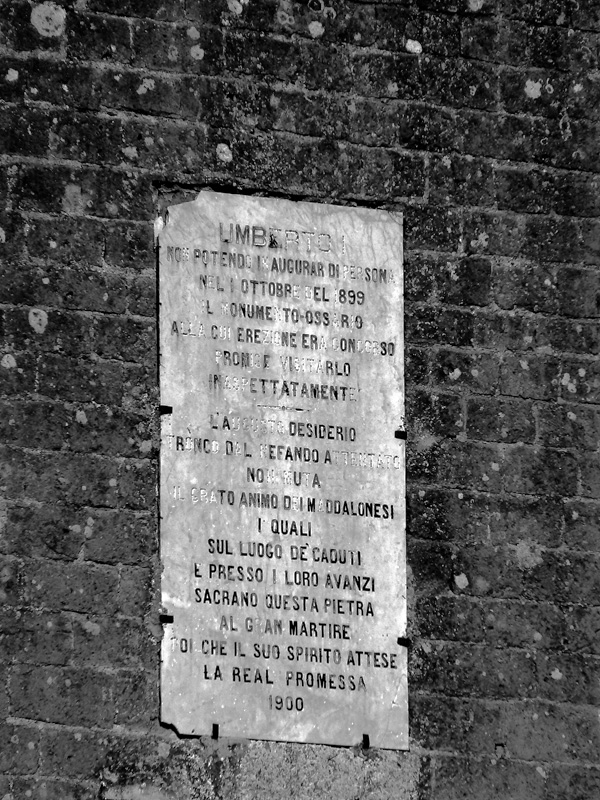 UMBERTO I
NON POTENDO INAUGURAR DI PERSONA
NEL 1 OTTOBRE DEL 1899
IL MONUMENTO-OSSARIO
ALLA CUI EREZIONE ERA CONCORSO
PROMISE VISITARLO
INASPETTATAMENTE
L'AUGUSTO DESIDERIO
TRONCO DAL NEFANDO ATTENTATO
NON MUTA
IL GRATO ANIMO DEI MADDALONESI
I QUALI
SUL LUOGO DE' CADUTI
E PRESSO I LORO AVANZI
SACRANO QUESTA PIETRA
AL GRAN MARTIRE
POI CHE IL SUO SPIRITO ATTESE
LA REAL PROMESSA
1900